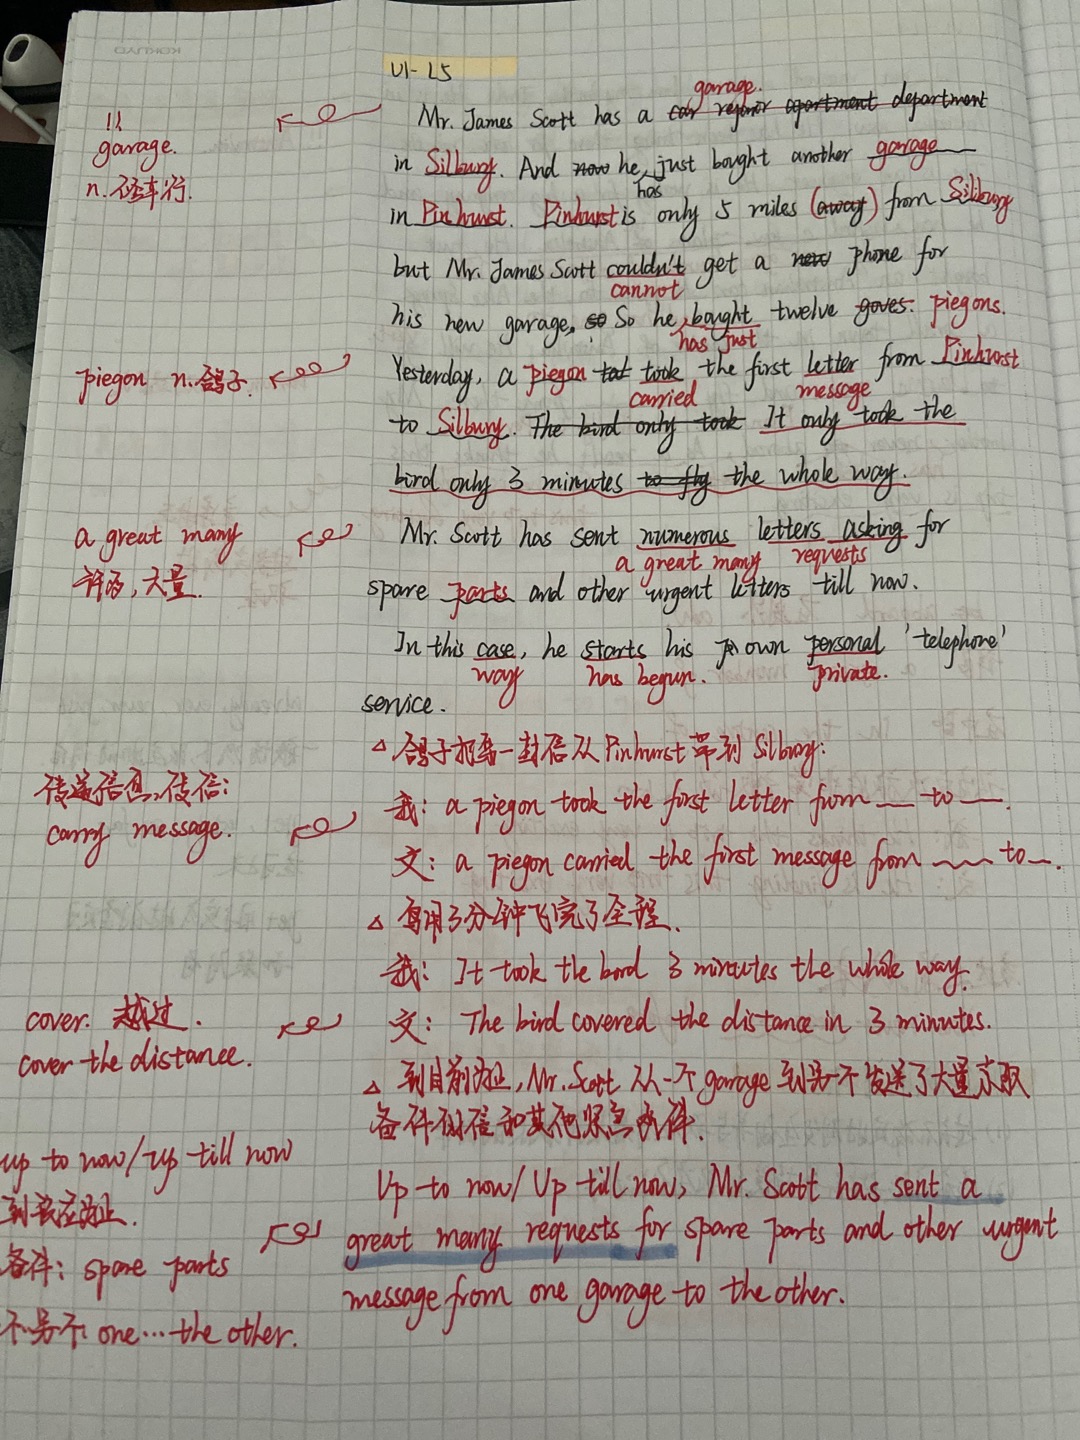 KOKUYO
U1-L5
garage.
Mr. James Scott has a car repair apartment department
!!
garage.
n. 修车行.
in Silbury. And now he, just bought another garage
has
in Pinhurst. Pinhurst is only 5 miles (away) from Silbury
but Mr. James Scott couldn't get a new phone for
cannot
his new garage, so So he, bought twelve goves. piegons.
has just
piegon n. 鸽子.
Yesterday, a piegon tat took the first letter from Pinhurst
carried message
to Silbury. The bird only took It only took the
bird only 3 minutes to fly the whole way.
a great many
许多, 大量.
Mr. Scott has sent numerous letters asking for
a great many requests
spare parts and other urgent letters till now.
In this case, he starts his own personal 'telephone'
way has begun. private.
service.
△ 鸽子携带一封信从Pinhurst带到Silbury:
传递信息,传信:
carry message.
我: a piegon took the first letter from __ to __.
文: a piegon carried the first message from __ to __.
△ 鸟用3分钟飞完了全程.
我: It took the bird 3 minutes the whole way.
cover. 越过.
cover the distance.
文: The bird covered the distance in 3 minutes.
△ 到目前为止, Mr. Scott 从一个garage到另一个发送了大量求取
备件的信和其他紧急邮件.
up to now/up till now
到现在为止.
Up to now/ Up till now, Mr. Scott has sent a
great many requests for spare parts and other urgent
message from one garage to the other.
备件: spare parts
one…the other.